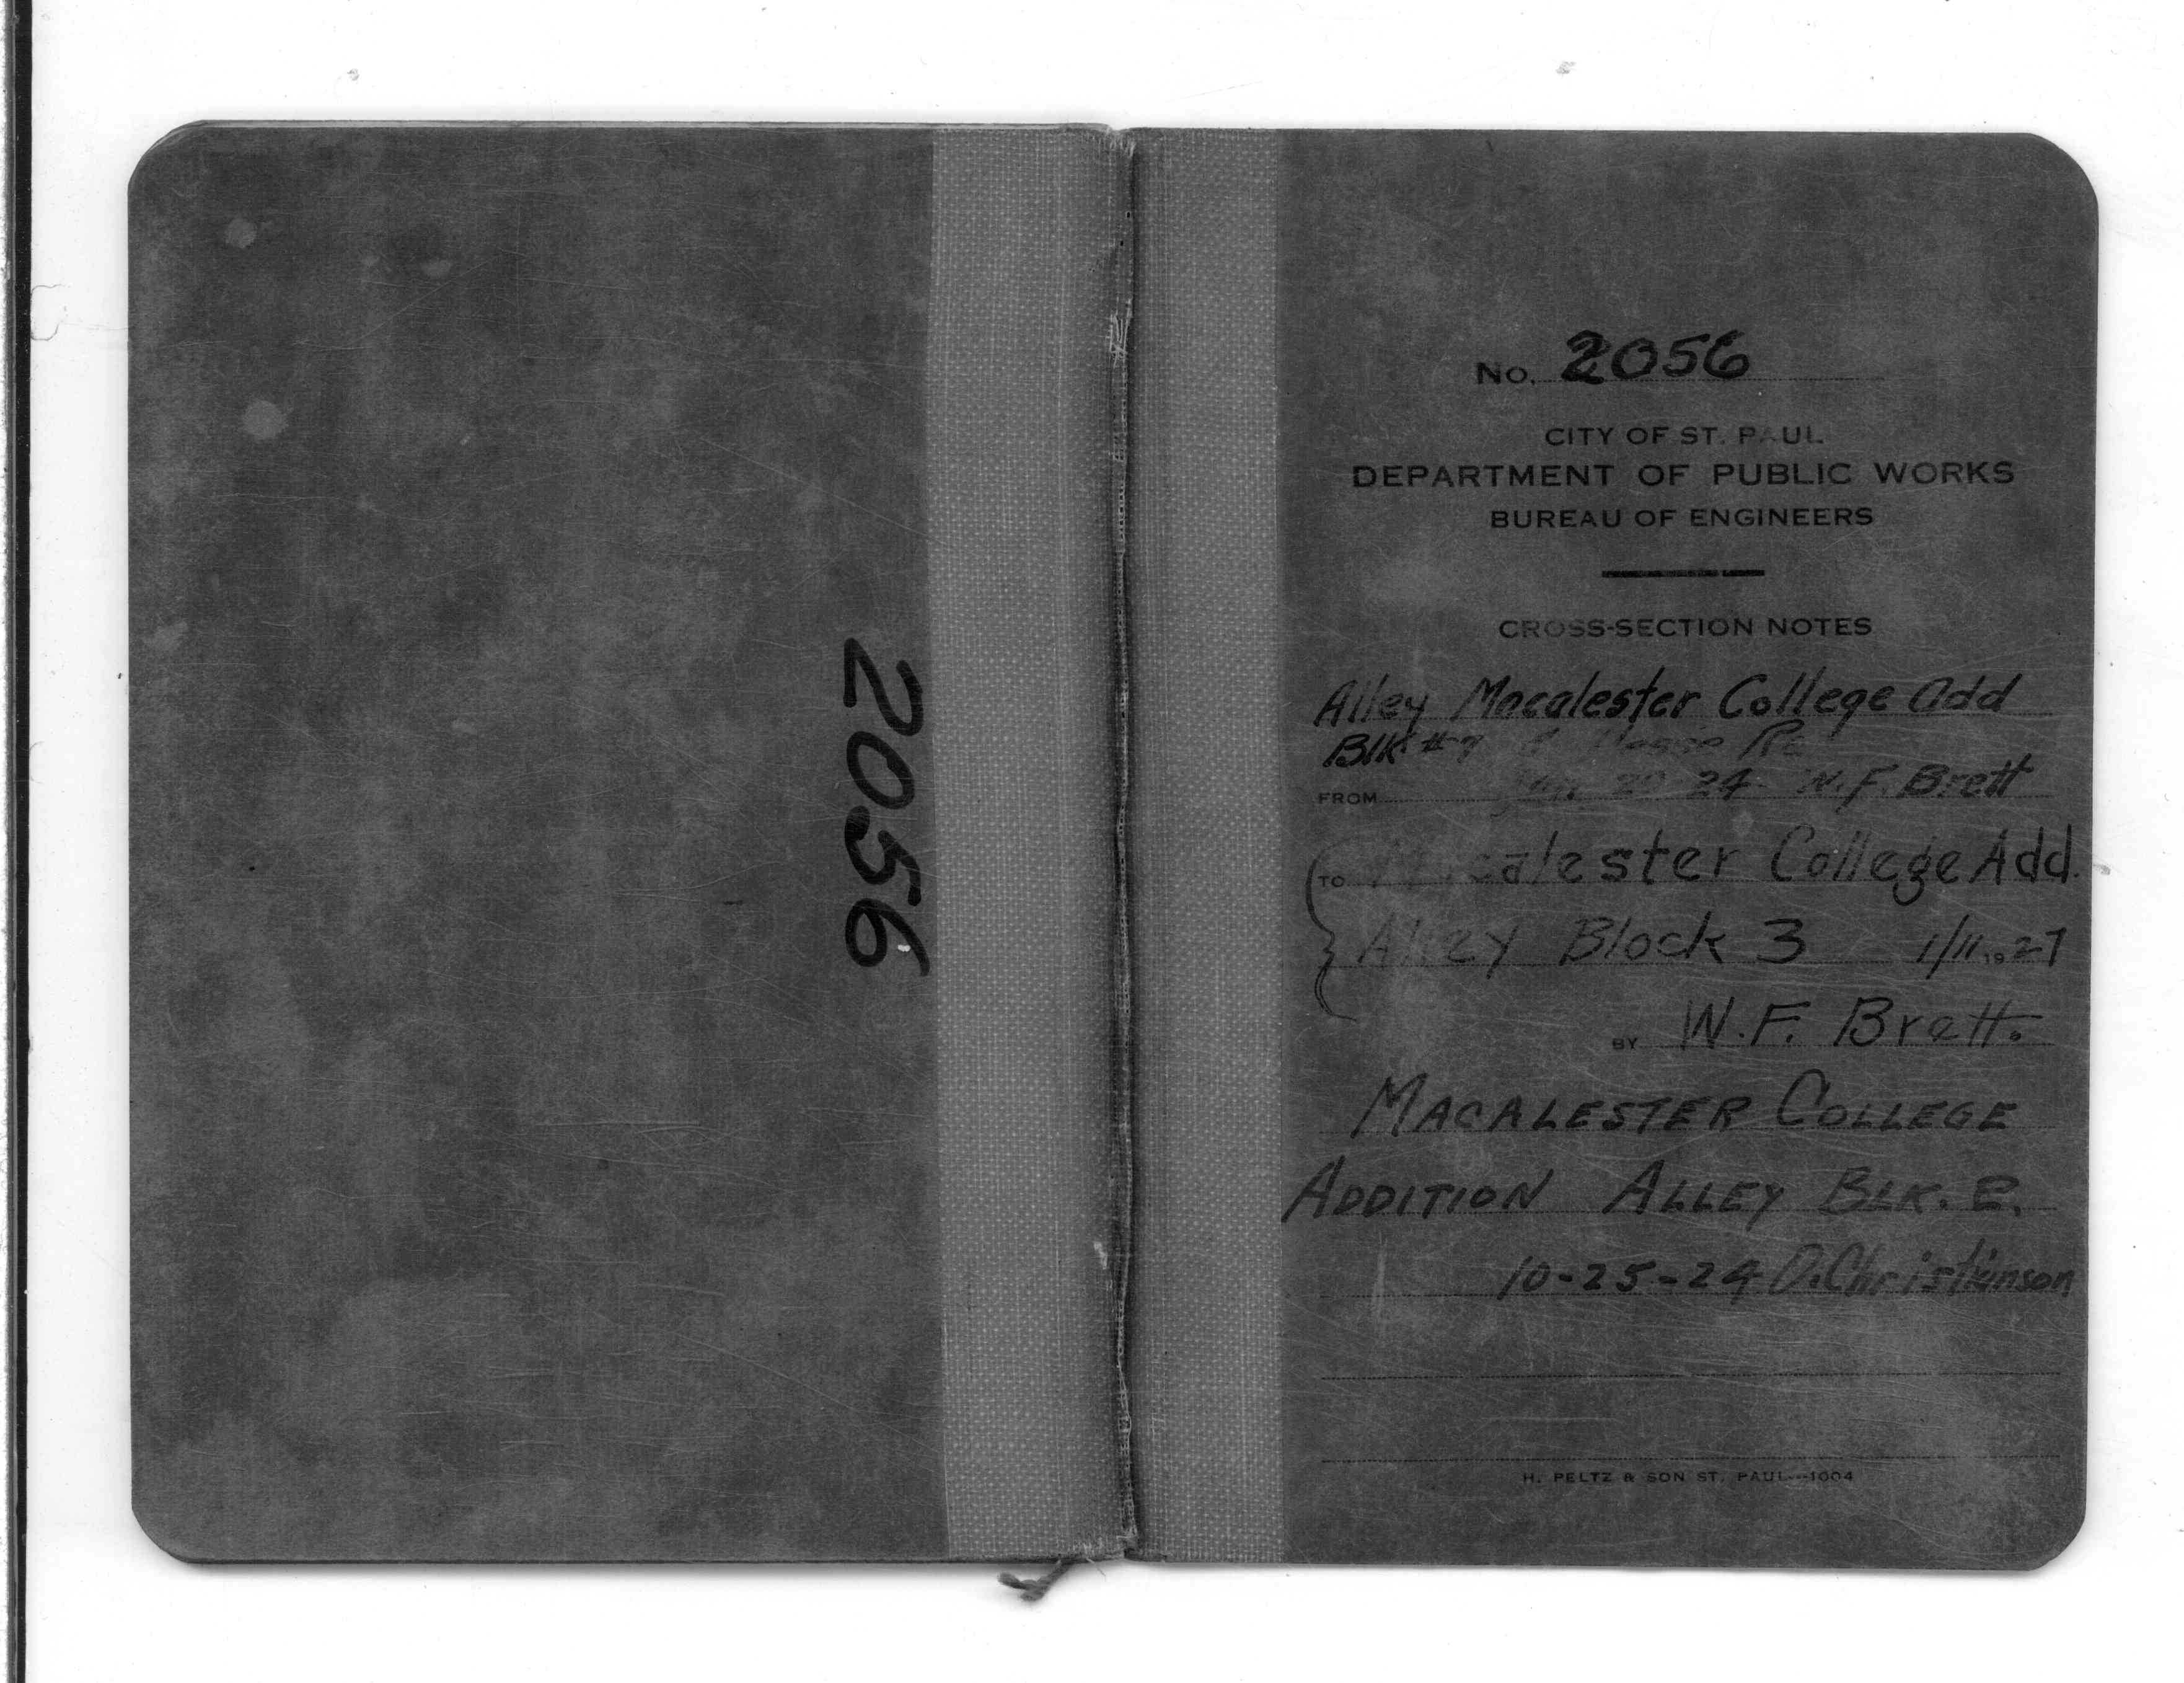 2056
No. 2056
CITY OF ST. PAUL
DEPARTMENT OF PUBLIC WORKS
BUREAU OF ENGINEERS
CROSS-SECTION NOTES
Alley Macalester College Add
Blk #
FROM 24 W.F. Brett
TO Macalester College Add.
Alley Block 3 1/11 1927
BY W.F. Brett.
MACALESTER COLLEGE
ADDITION ALLEY BLK.
10-25-24 O. Christianson
H. PELTZ & SON ST. PAUL--1004